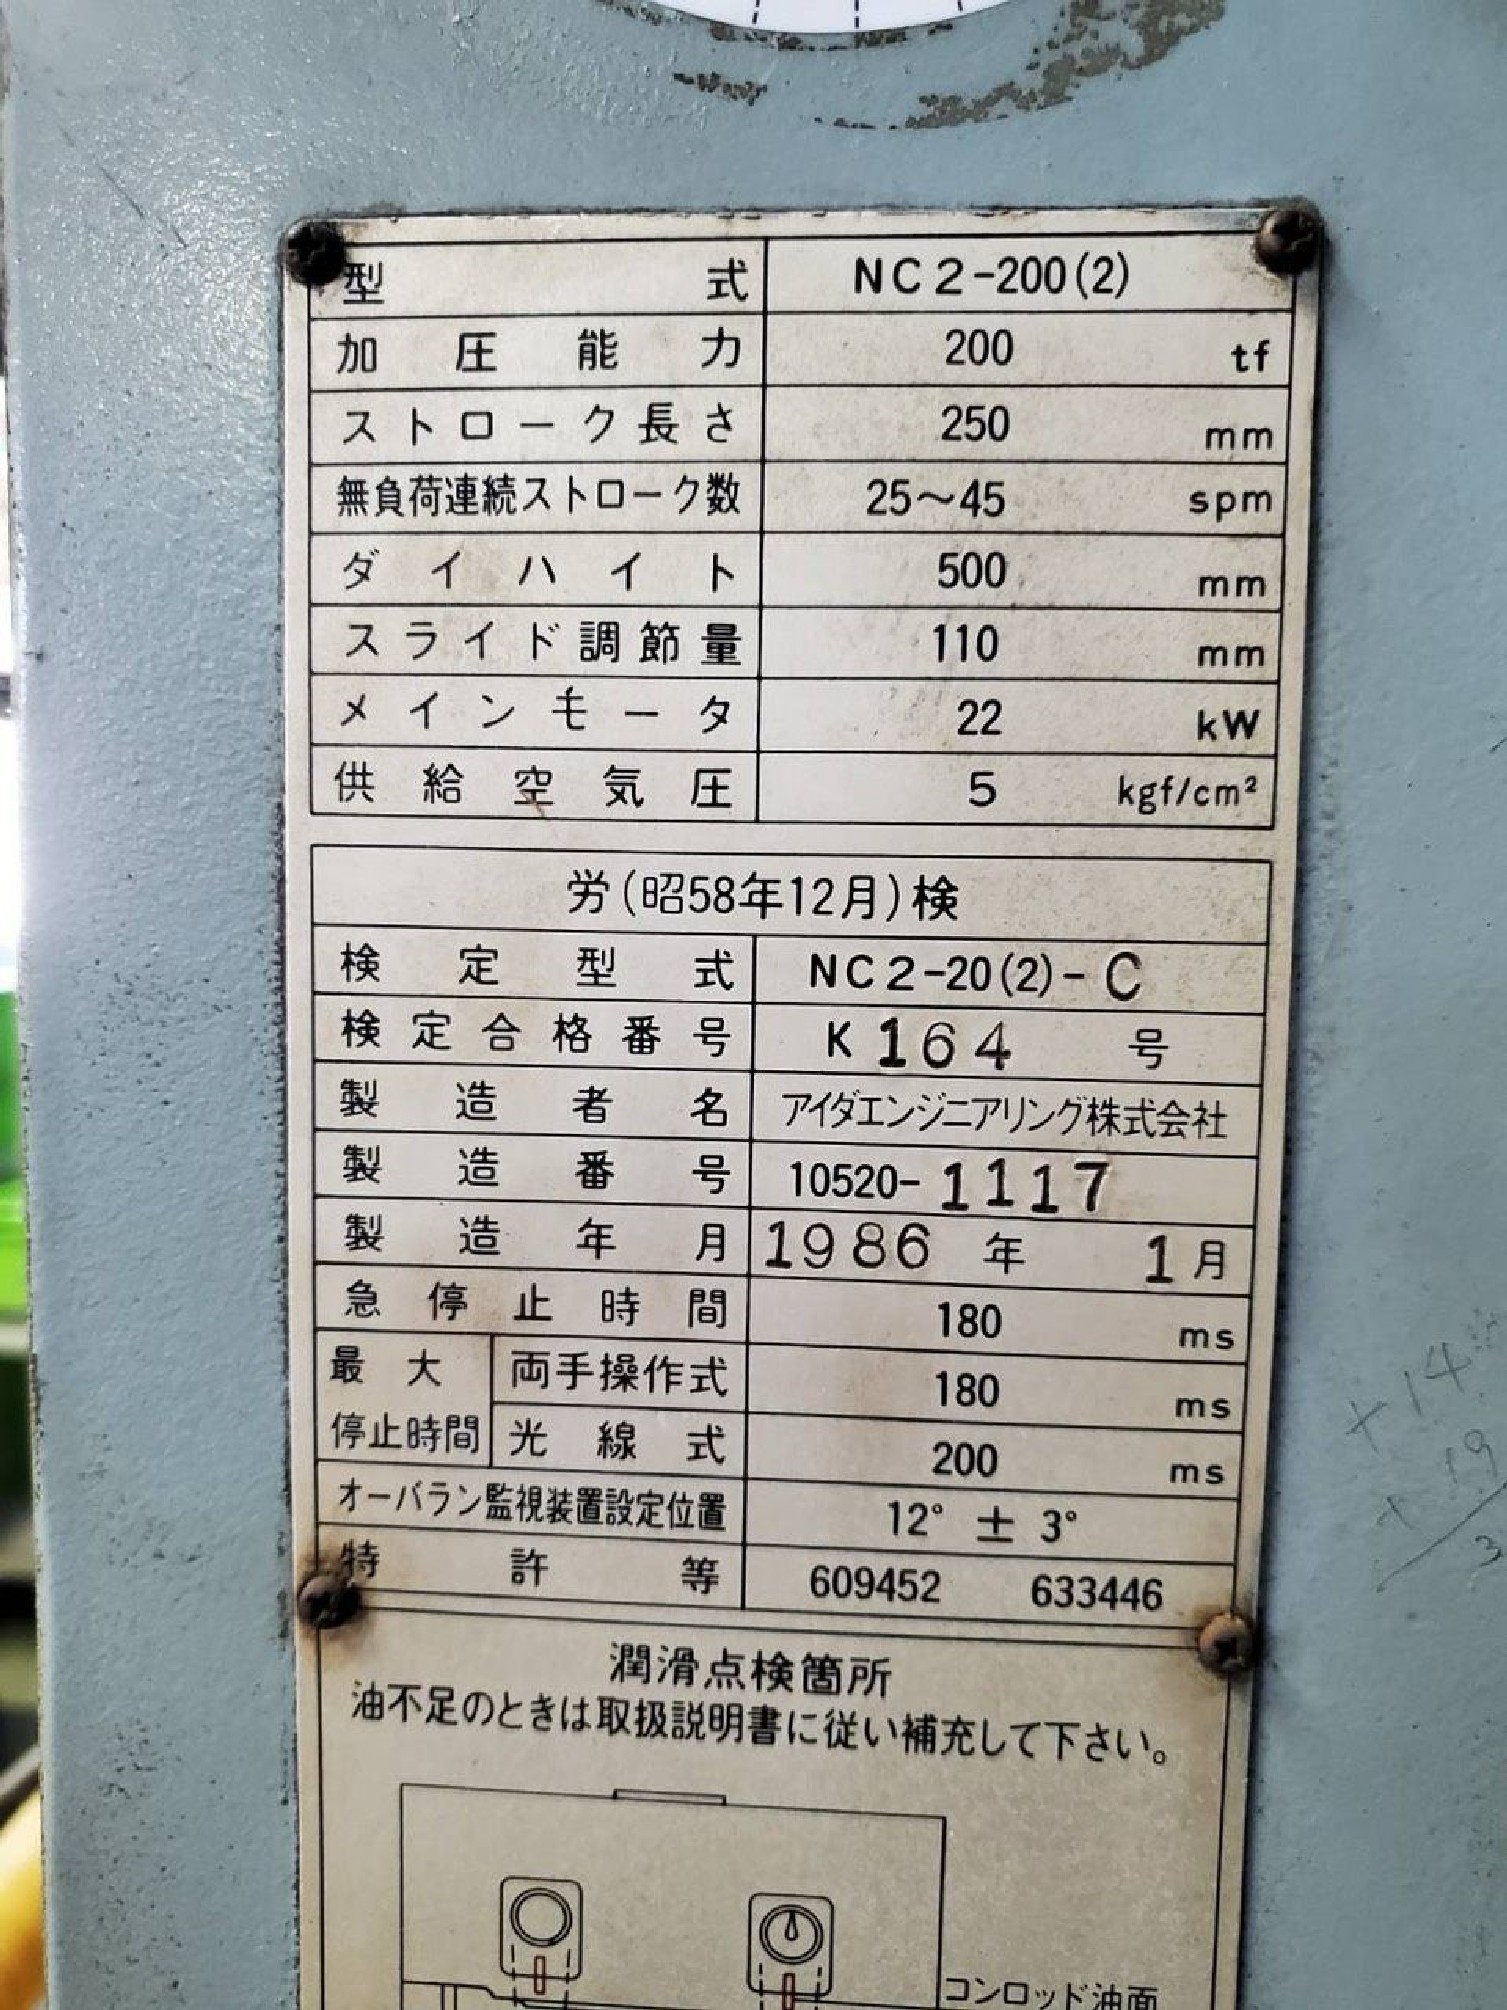 型式 NC2-200(2)
加圧能力 200 tf
ストローク長さ 250 mm
無負荷連続ストローク数 25～45 spm
ダイハイト 500 mm
スライド調節量 110 mm
メインモータ 22 kW
供給空気圧 5 kgf/cm²
労(昭58年12月)検
検定型式 NC2-20(2)-C
検定合格番号 K164号
製造者名 アイダエンジニアリング株式会社
製造番号 10520-1117
製造年月 1986年 1月
急停止時間 180 ms
最大停止時間 両手操作式 180 ms
光線式 200 ms
オーバラン監視装置設定位置 12° ± 3°
特許等 609452 633446
潤滑点検箇所
油不足のときは取扱説明書に従い補充して下さい。
コンロッド油面
+14
19
3